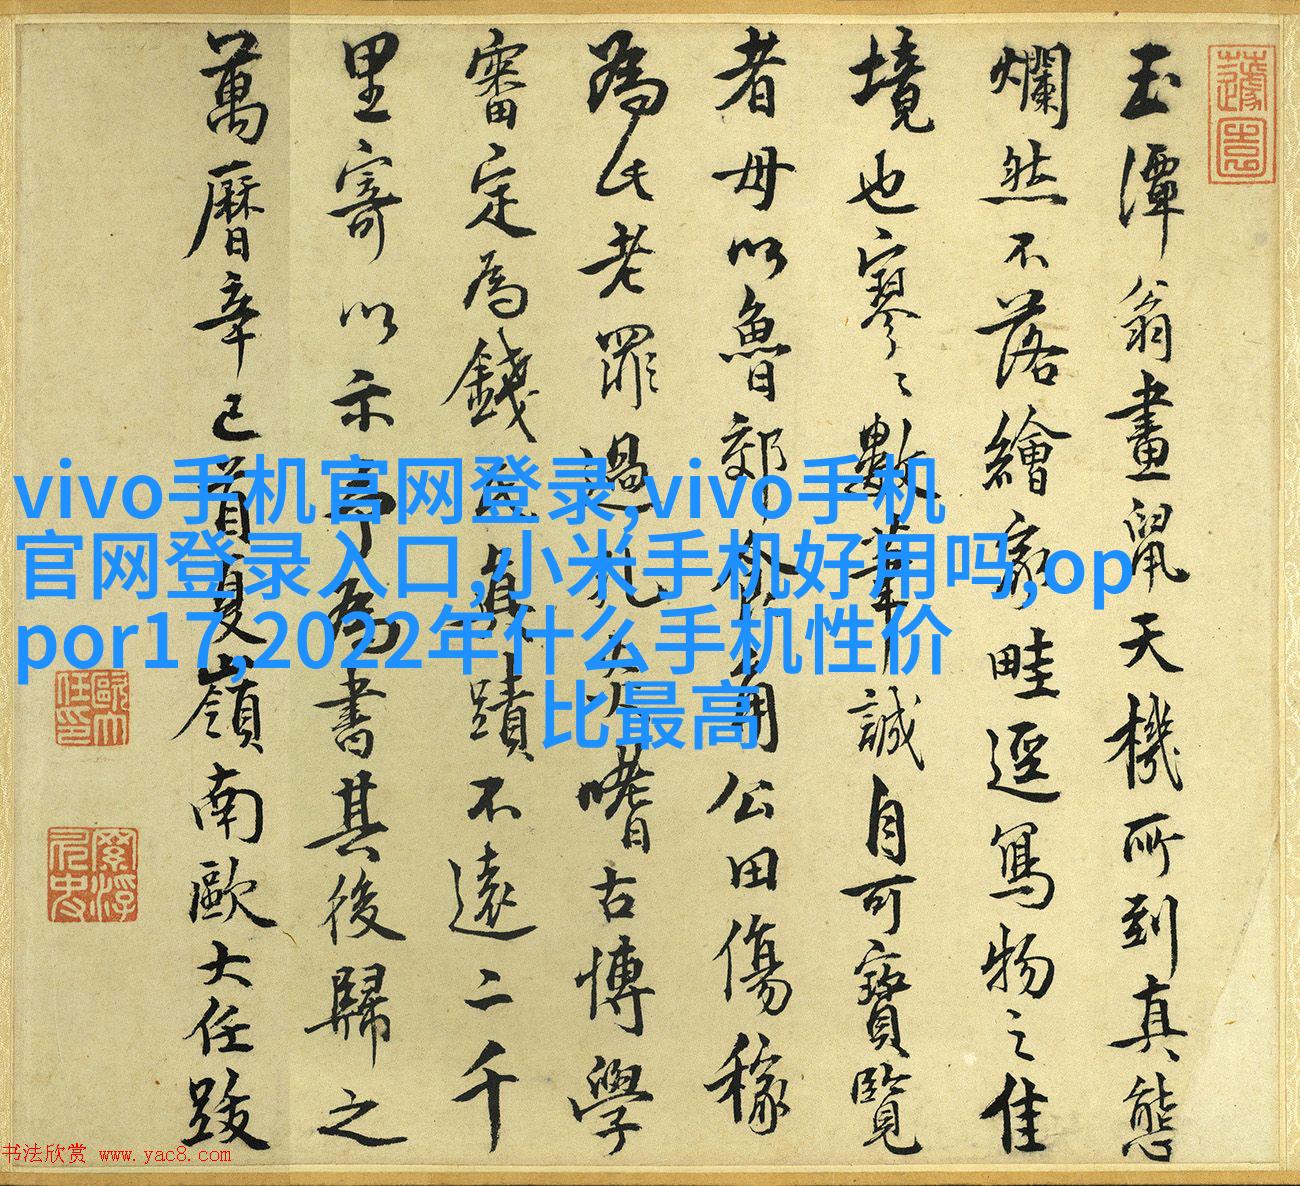 玉潭翁畫鼠天機所到真態
爛然不落繪家畦逕寫物之佳
境也寥〻數筆誠自可寶覽
者毋以魯郊食角公田傷稼
為此老罪過孔炎嗜古博學
審定為錢氏真蹟不遠二千
里寄以示予為書其後歸之
萬曆辛巳首夏嶺南歐大任跋
歐大任印
vivo手机官网登录,vivo手机
官网登录入口,小米手机好用吗,op
por17,2022年什么手机性价
比最高
书法欣赏 www.yac8.com